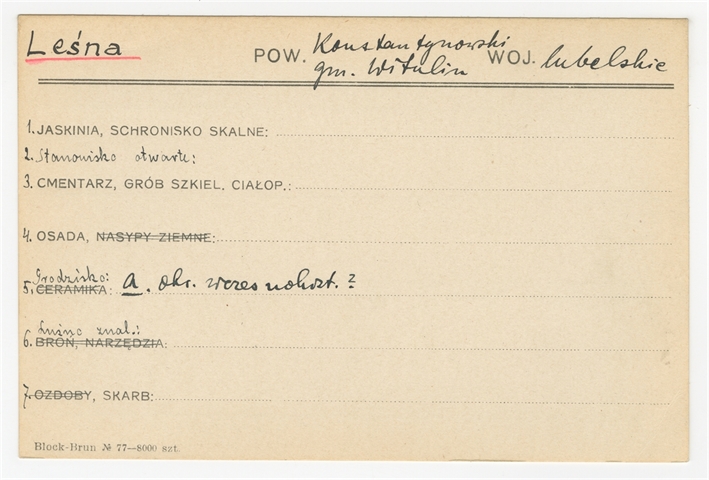 Leśna POW. Konstantynowski WOJ. lubelskie
gm. Witulin
1. JASKINIA, SCHRONISKO SKALNE:
2. Stanowisko otwarte:
3. CMENTARZ, GRÓB SZKIEL. CIAŁOP.:
4. OSADA, NASYPY ZIEMNE:
Grodzisko:
5. CERAMIKA: A. okr. wczesnohist. ?
Luźne znal.:
6. BROŃ, NARZĘDZIA:
7. OZDOBY, SKARB:
Block-Brun № 77—8000 szt.